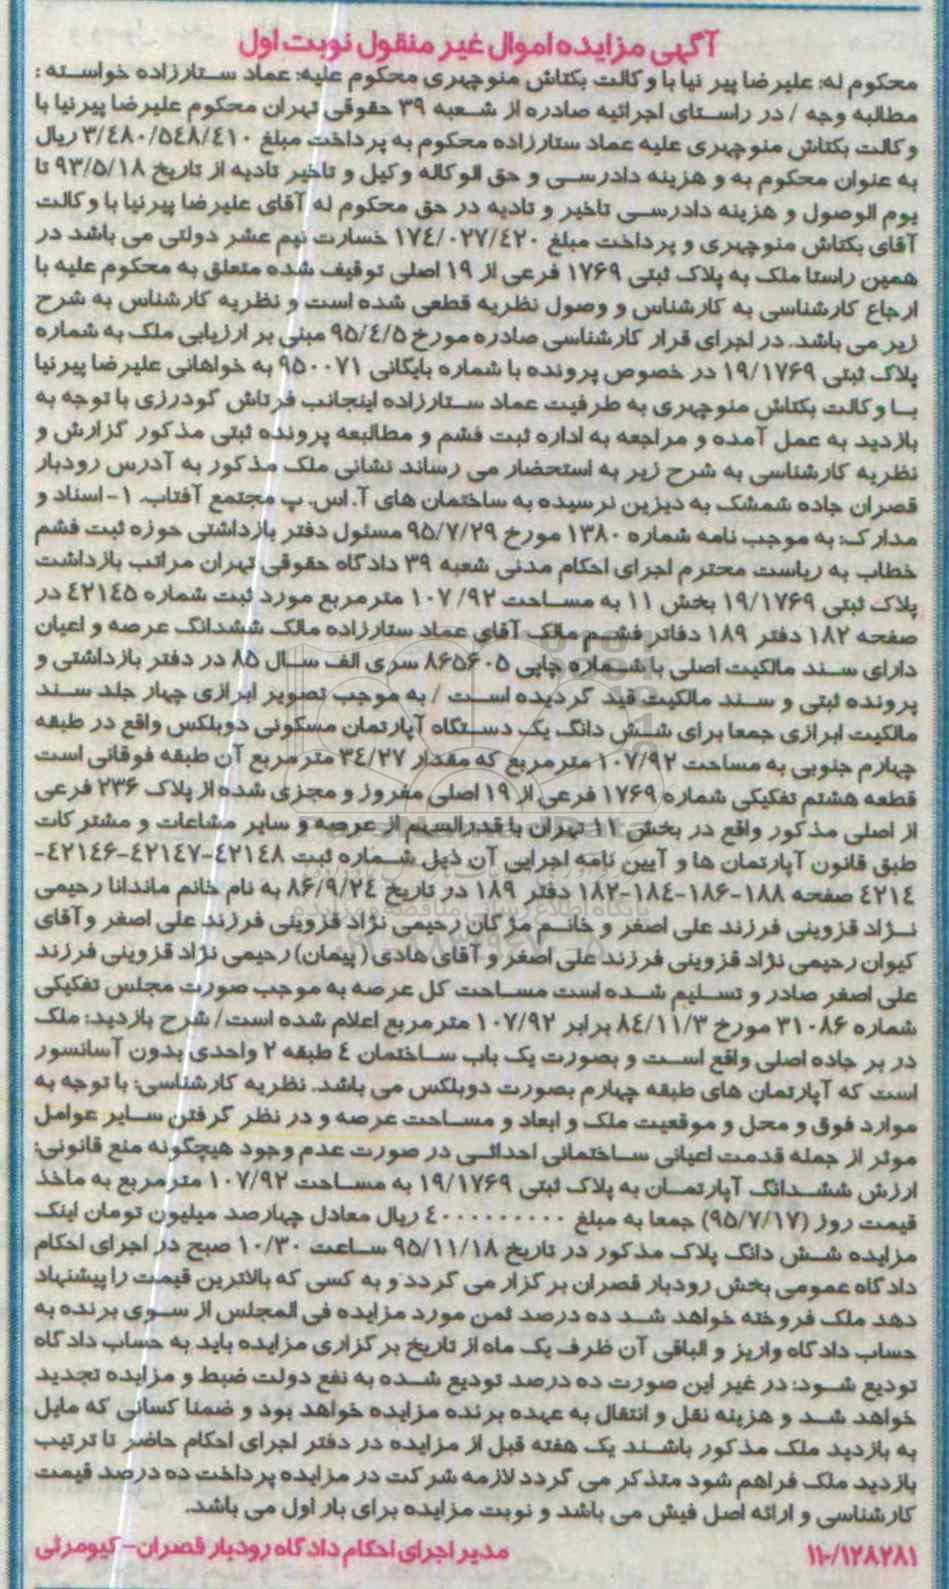 آگهی مزایده اموال غیر منقول نوبت اول
محکوم له: علیرضا پیر نیا با وکالت بکتاش منوچهری محکوم علیه: عماد ستارزاده خواسته :
مطالبه وجه / در راستای اجرائیه صادره از شعبه ۳۹ حقوقی تهران محکوم علیرضا پیرنیا با
وکالت بکتاش منوچهری علیه عماد ستارزاده محکوم به پرداخت مبلغ ۳/۴۸۰/۵۴۸/۴۱۰ ریال
به عنوان محکوم به و هزینه دادرسی و حق الوکاله وکیل و تاخیر تادیه از تاریخ ۹۳/۵/۱۸ تا
یوم الوصول و هزینه دادرسی تاخیر و تادیه در حق محکوم له آقای علیرضا پیرنیا با وکالت
آقای بکتاش منوچهری و پرداخت مبلغ ۱۷۴/۰۲۷/۴۲۰ خسارت نیم عشر دولتی می باشد در
همین راستا ملک به پلاک ثبتی ۱۷۶۹ فرعی از ۱۹ اصلی توقیف شده متعلق به محکوم علیه با
ارجاع کارشناسی به کارشناس و وصول نظریه قطعی شده است و نظریه کارشناس به شرح
زیر می باشد. در اجرای قرار کارشناسی صادره مورخ ۹۵/۴/۵ مبنی بر ارزیابی ملک به شماره
پلاک ثبتی ۱۹/۱۷۶۹ در خصوص پرونده با شماره بایگانی ۹۵۰۰۷۱ به خواهانی علیرضا پیرنیا
با وکالت بکتاش منوچهری به طرفیت عماد ستارزاده اینجانب فرتاش گودرزی با توجه به
بازدید به عمل آمده و مراجعه به اداره ثبت فشم و مطالبعه پرونده ثبتی مذکور گزارش و
نظریه کارشناسی به شرح زیر به استحضار می رساند نشانی ملک مذکور به آدرس رودبار
قصران جاده شمشک به دیزین نرسیده به ساختمان های آ. اس. پ مجتمع آفتاب. ۱- اسناد و
مدارک: به موجب نامه شماره ۱۳۸۰ مورخ ۹۵/۷/۲۹ مسئول دفتر بازداشتی حوزه ثبت فشم
خطاب به ریاست محترم اجرای احکام مدنی شعبه ۳۹ دادگاه حقوقی تهران مراتب بازداشت
پلاک ثبتی ۱۹/۱۷۶۹ بخش ۱۱ به مساحت ۱۰۷/۹۲ مترمربع مورد ثبت شماره ۴۲۱۴۵ در
صفحه ۱۸۲ دفتر ۱۸۹ دفاتر فشم مالک آقای عماد ستارزاده مالک ششدانگ عرصه و اعیان
دارای سند مالکیت اصلی با شماره چاپی ۸۶۵۶۰۵ سری الف سال ۸۵ در دفتر بازداشتی و
پرونده ثبتی و سند مالکیت قید گردیده است / به موجب تصویر ابرازی چهار جلد سند
مالکیت ابرازی جمعا برای شش دانگ یک دستگاه آپارتمان مسکونی دوبلکس واقع در طبقه
چهارم جنوبی به مساحت ۱۰۷/۹۲ مترمربع که مقدار ۳۴/۲۷ مترمربع آن طبقه فوقانی است
قطعه هشتم تفکیکی شماره ۱۷۶۹ فرعی از ۱۹ اصلی مفروز و مجزی شده از پلاک ۲۳۶ فرعی
از اصلی مذکور واقع در بخش ۱۱ تهران با قدرالسهم از عرصه و سایر مشاعات و مشترکات
طبق قانون آپارتمان ها و آیین نامه اجرایی آن ذیل شماره ثبت ۴۲۱۴۸-۴۲۱۴۷-۴۲۱۴۶-
۴۲۱۴ صفحه ۱۸۸-۱۸۶-۱۸۴-۱۸۲ دفتر ۱۸۹ در تاریخ ۸۶/۹/۲۴ به نام خانم ماندانا رحیمی
نژاد قزوینی فرزند علی اصغر و خانم مژگان رحیمی نژاد قزوینی فرزند علی اصغر و آقای
کیوان رحیمی نژاد قزوینی فرزند علی اصغر و آقای هادی (پیمان) رحیمی نژاد قزوینی فرزند
علی اصغر صادر و تسلیم شده است مساحت کل عرصه به موجب صورت مجلس تفکیکی
شماره ۳۱۰۸۶ مورخ ۸۴/۱۱/۳ برابر ۱۰۷/۹۲ مترمربع اعلام شده است/ شرح بازدید: ملک
در بر جاده اصلی واقع است و بصورت یک باب ساختمان ۴ طبقه ۲ واحدی بدون آسانسور
است که آپارتمان های طبقه چهارم بصورت دوبلکس می باشد. نظریه کارشناسی: با توجه به
موارد فوق و محل و موقعیت ملک و ابعاد و مساحت عرصه و در نظر گرفتن سایر عوامل
موثر از جمله قدمت اعیانی ساختمانی احداثی در صورت عدم وجود هیچگونه منع قانونی:
ارزش ششدانگ آپارتمان به پلاک ثبتی ۱۹/۱۷۶۹ به مساحت ۱۰۷/۹۲ مترمربع به ماخذ
قیمت روز (۹۵/۷/۱۷) جمعا به مبلغ ۴۰۰۰۰۰۰۰۰۰ ریال معادل چهارصد میلیون تومان اینک
مزایده شش دانگ پلاک مذکور در تاریخ ۹۵/۱۱/۱۸ ساعت ۱۰/۳۰ صبح در اجرای احکام
دادگاه عمومی بخش رودبار قصران برگزار می گردد و به کسی که بالاترین قیمت را پیشنهاد
دهد ملک فروخته خواهد شد ده درصد ثمن مورد مزایده فی المجلس از سوی برنده به
حساب دادگاه واریز و الباقی آن ظرف یک ماه از تاریخ برگزاری مزایده باید به حساب دادگاه
تودیع شود: در غیر این صورت ده درصد تودیع شده به نفع دولت ضبط و مزایده تجدید
خواهد شد و هزینه نقل و انتقال به عهده برنده مزایده خواهد بود و ضمنا کسانی که مایل
به بازدید ملک مذکور باشند یک هفته قبل از مزایده در دفتر اجرای احکام حاضر تا ترتیب
بازدید ملک فراهم شود متذکر می گردد لازمه شرکت در مزایده پرداخت ده درصد قیمت
کارشناسی و ارائه اصل فیش می باشد و نوبت مزایده برای بار اول می باشد.
۱۱۰/۱۲۸۲۸۱ مدیر اجرای احکام دادگاه رودبار قصران- کیومرثی